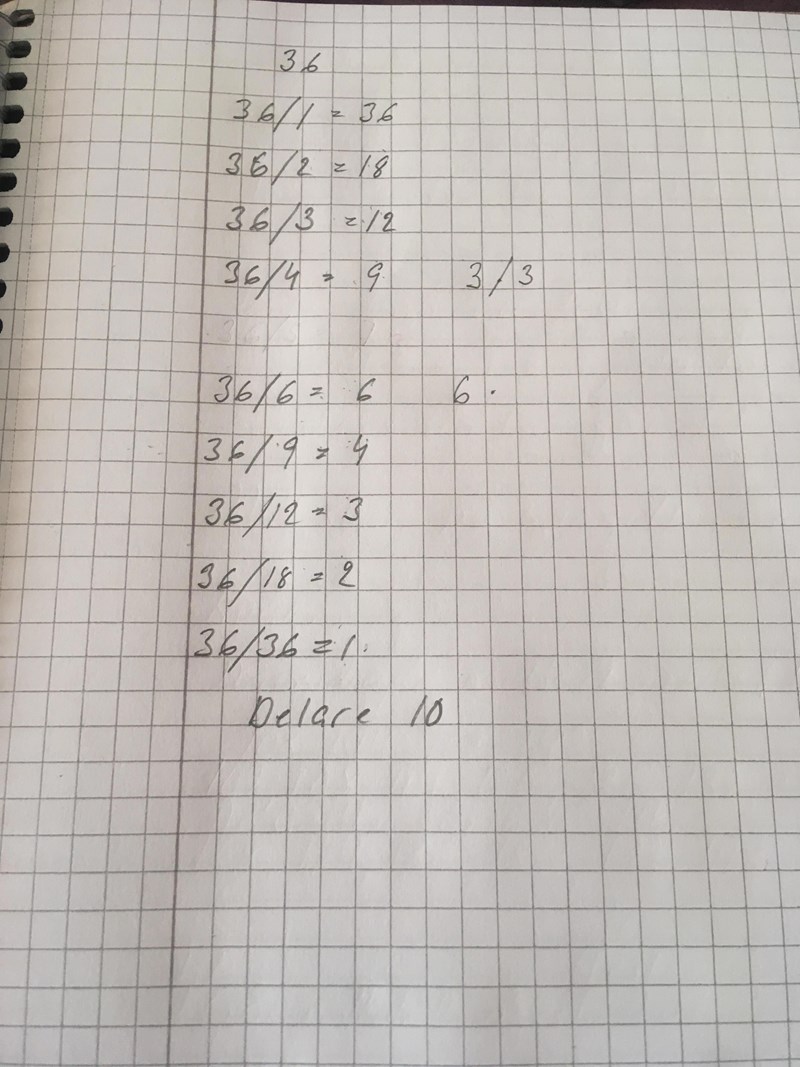 36
36/1 = 36
36/2 = 18
36/3 = 12
36/4 = 9 3/3
36/6 = 6 6 .
36/9 = 4
36/12 = 3
36/18 = 2
36/36 = 1.
Delare 10